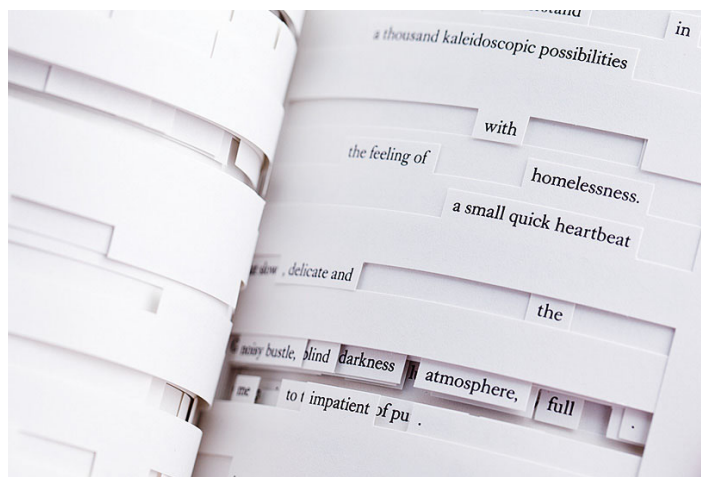 in
a thousand kaleidoscopic possibilities
with
the feeling of homelessness.
a small quick heartbeat
, delicate and
the
noisy bustle, blind darkness atmosphere, full .
me to impatient of pu .